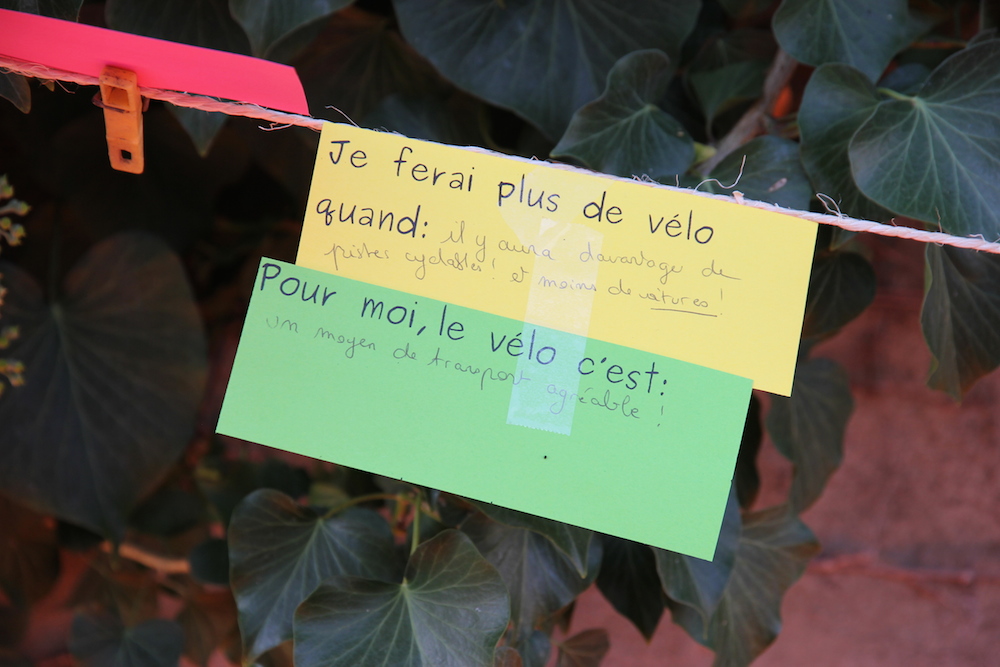 Je ferai plus de vélo
quand: il y aura davantage de
pistes cyclables! et moins de voitures!
Pour moi, le vélo c'est:
un moyen de transport agréable !